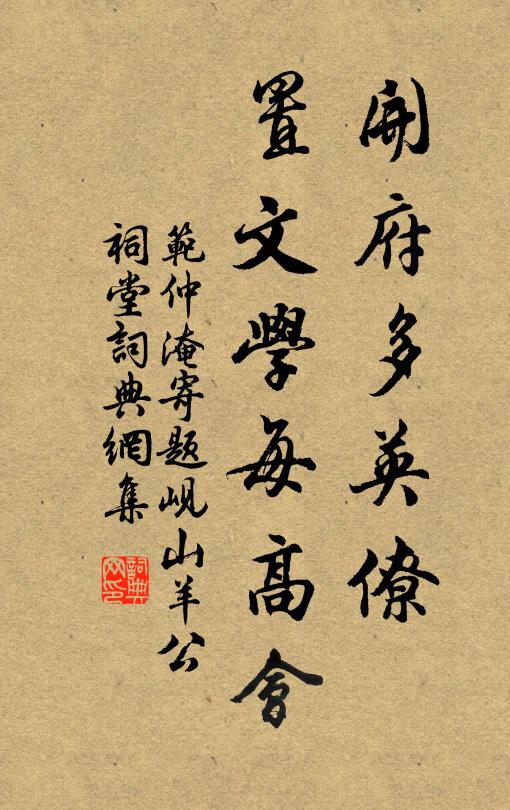 開府多英僚
置文學每高會
範仲淹寄題峴山羊公
祠堂詞典網集
詞典
网印